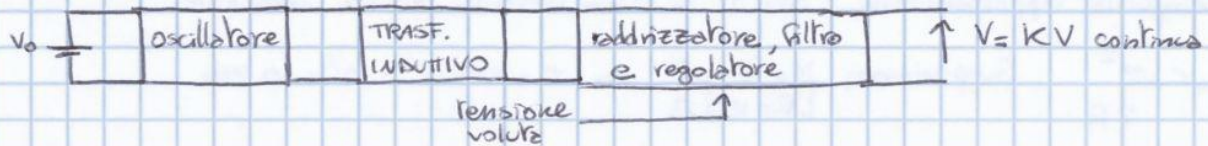 V₀
oscillatore
TRASF.
INDUTTIVO
raddrizzatore, filtro
e regolatore
V = KV continua
tensione
voluta